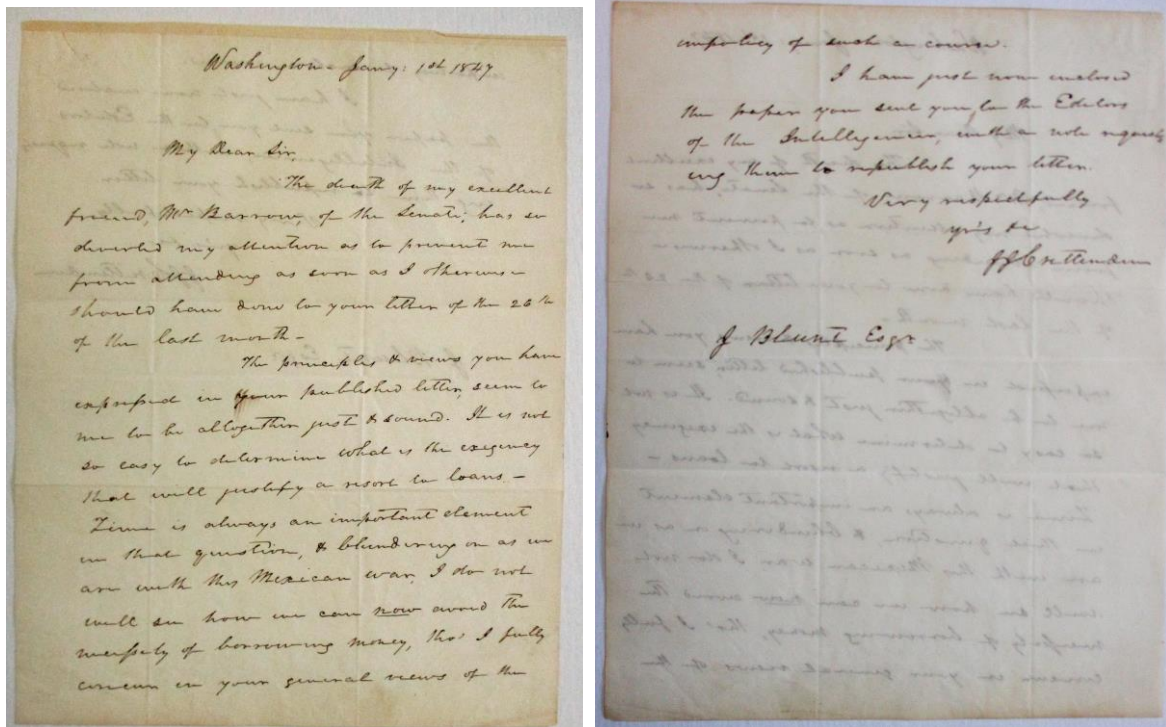 Washington. Jany: 1st 1847
My Dear Sir,
The death of my excellent
friend, Mr Barrow, of the Senate, has so
diverted my attention as to prevent me
from attending as soon as I otherwise
should have done to your letter of the 26th
of the last month -
The principles & views you have
expressed in your published letter, seem to
me to be altogether just & sound. It is not
so easy to determine what is the exigency
that will justify a resort to loans. -
Time is always an important element
in that question, & blundering on as we
are with this Mexican war, I do not
well see how we can now avoid the
necessity of borrowing money, tho' I fully
concur in your general views of the
impolicy of such a course.
I have just now enclosed
the paper you sent you, to the Editors
of the Intelligencer, with a note request
ing them to republish your letter.
Very respectfully
yr's &c
J J Crittenden
J Blunt Esqr